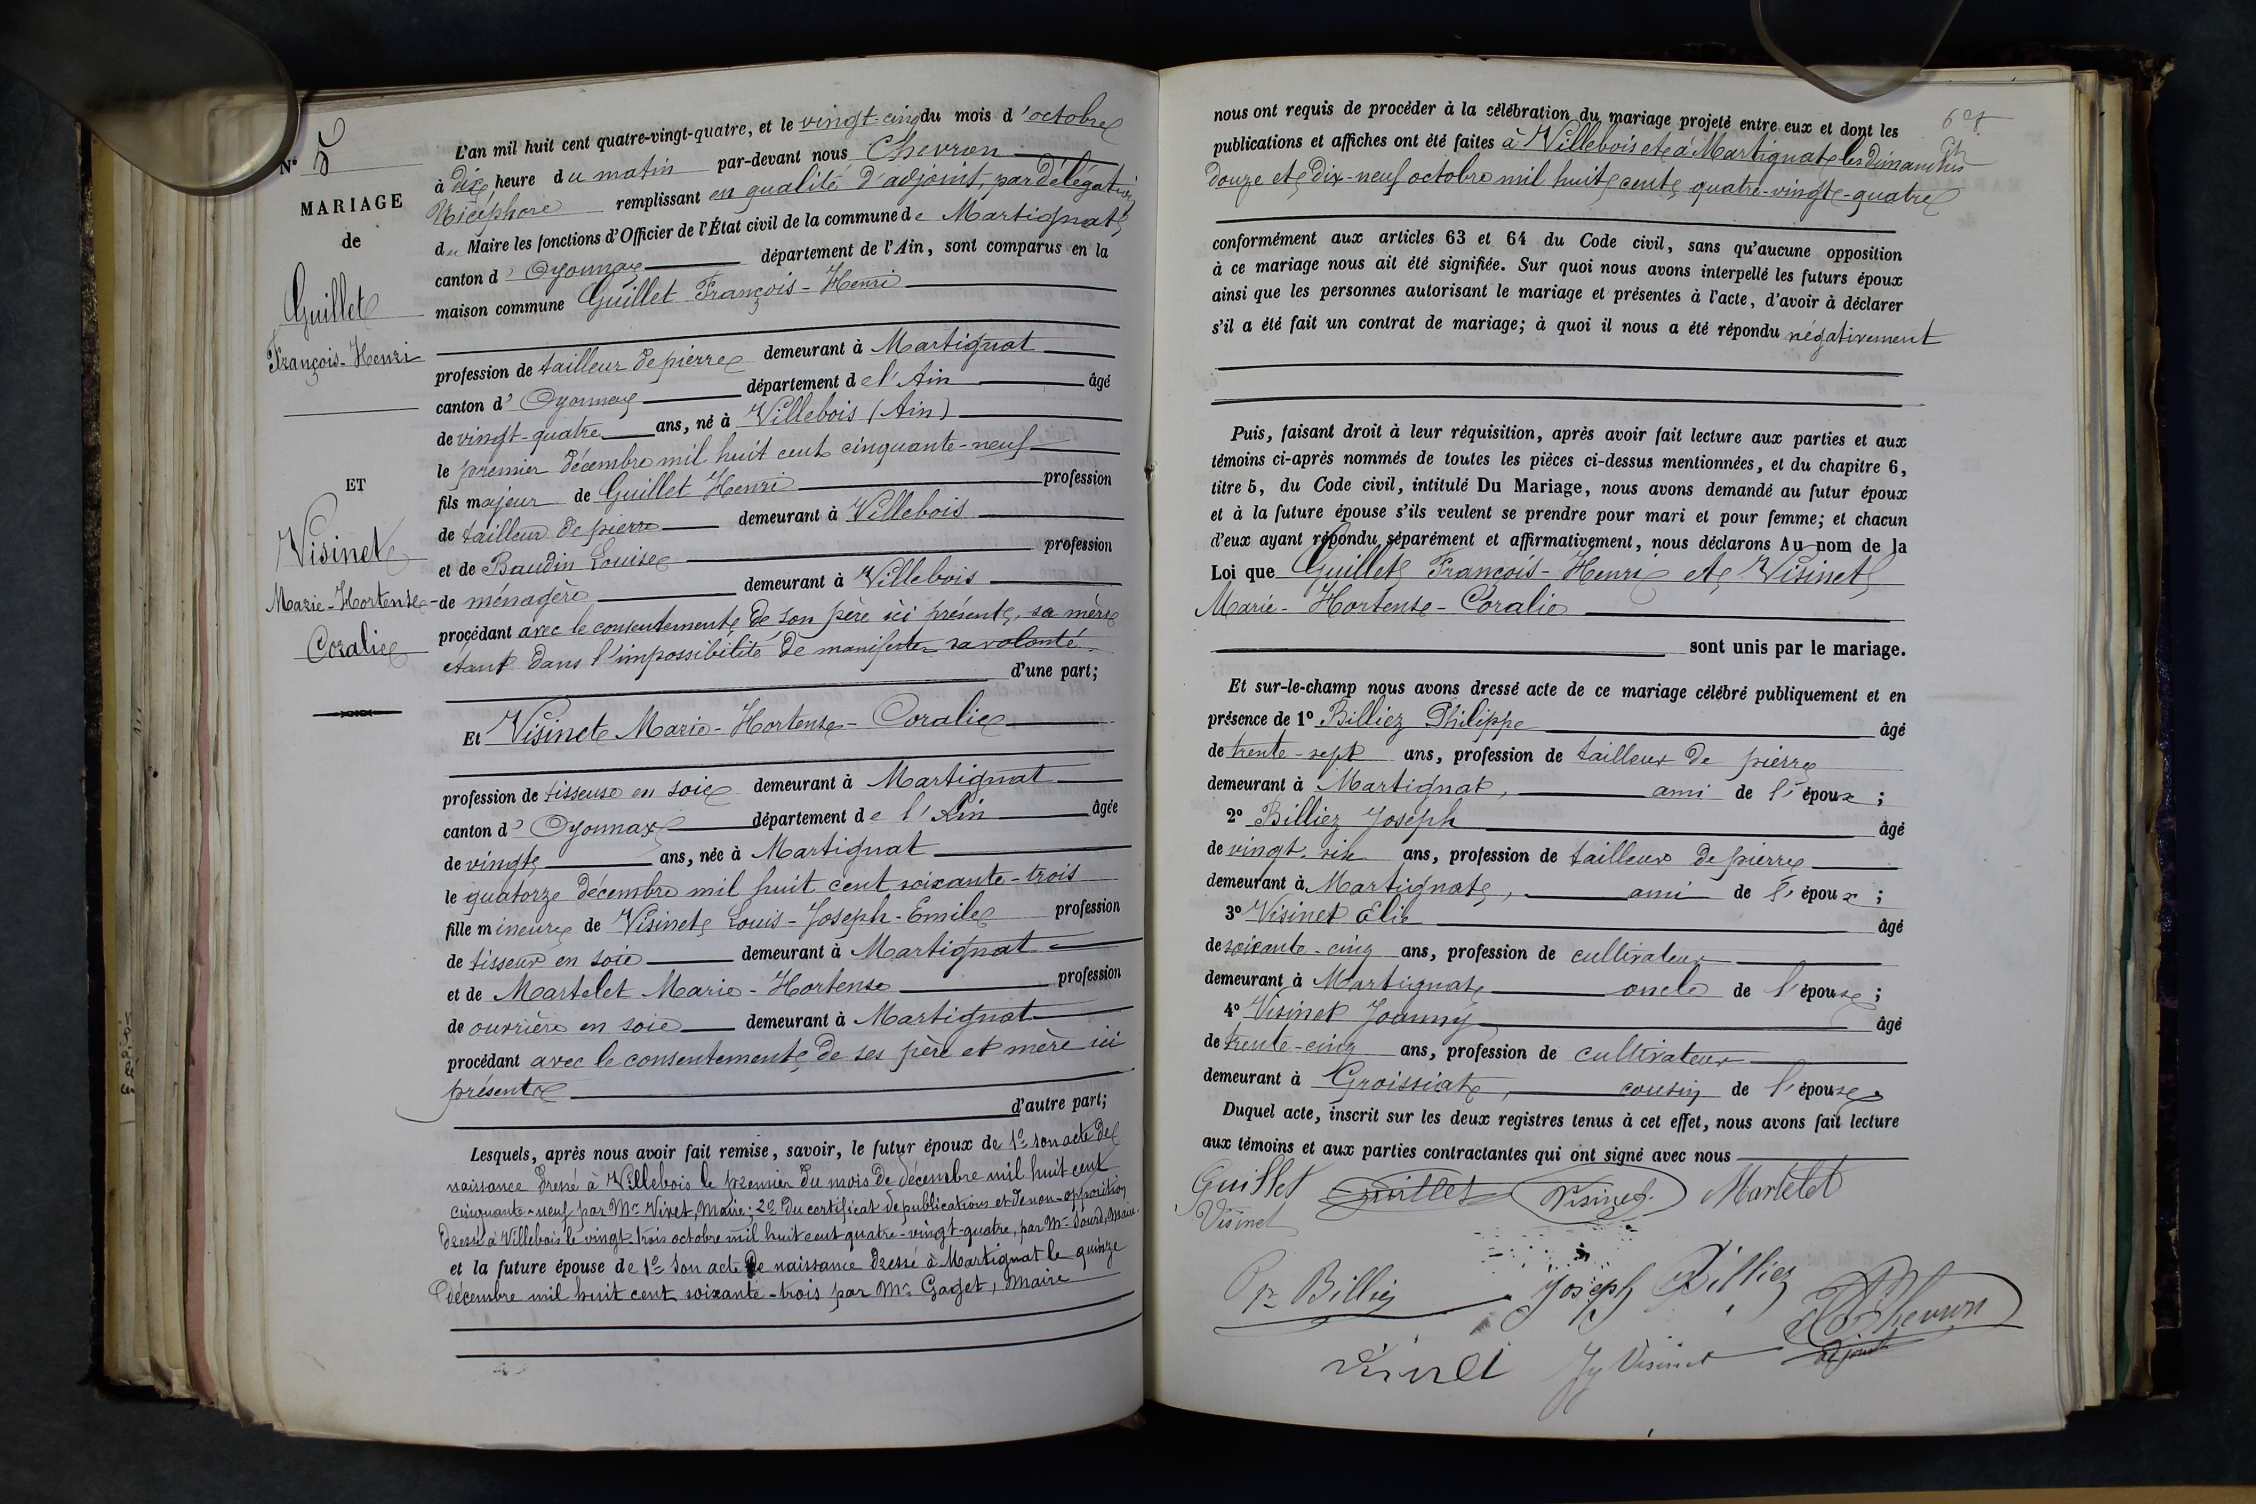 N° 5
MARIAGE
de
Guillet
François-Henri
ET
Visinet
Marie-Hortense-
Coralie
L'an mil huit cent quatre-vingt-quatre, et le vingt-cinq du mois d'octobre
à dix heure du matin par-devant nous Chevron
Nicéphore remplissant en qualité d'adjoint, par délégation
du Maire les fonctions d'Officier de l'État civil de la commune de Martignat
canton d'Oyonnax département de l'Ain, sont comparus en la
maison commune Guillet François-Henri
profession de tailleur de pierre demeurant à Martignat
canton d'Oyonnax département de l'Ain âgé
de vingt-quatre ans, né à Villebois (Ain)
le premier décembre mil huit cent cinquante-neuf
fils majeur de Guillet Henri profession
de tailleur de pierre demeurant à Villebois
et de Baudin Louise profession
de ménagère demeurant à Villebois
procédant avec le consentement de son père ici présent, sa mère
étant dans l'impossibilité de manifester sa volonté.
d'une part;
Et Visinet Marie-Hortense-Coralie
profession de tisseuse en soie demeurant à Martignat
canton d'Oyonnax département de l'Ain âgée
de vingt ans, née à Martignat
le quatorze décembre mil huit cent soixante-trois
fille mineure de Visinet Louis-Joseph-Emile profession
de tisseur en soie demeurant à Martignat
et de Martelet Marie-Hortense profession
de ouvrière en soie demeurant à Martignat
procédant avec le consentement de ses père et mère ici
présents
d'autre part;
Lesquels, après nous avoir fait remise, savoir, le futur époux de 1° son acte de
naissance dressé à Villebois le premier du mois de décembre mil huit cent
cinquante-neuf par Mr Vivet, Maire; 2° du certificat de publications et de non-opposition
dressé à Villebois le vingt-trois octobre mil huit cent quatre-vingt-quatre, par Mr Sourd, Maire.
et la future épouse de 1° son acte de naissance dressé à Martignat le quinze
décembre mil huit cent soixante-trois par Mr Gaget, Maire
nous ont requis de procéder à la célébration du mariage projeté entre eux et dont les
publications et affiches ont été faites à Villebois et à Martignat les dimanches
douze et dix-neuf octobre mil huit cent quatre-vingt-quatre
conformément aux articles 63 et 64 du Code civil, sans qu'aucune opposition
à ce mariage nous ait été signifiée. Sur quoi nous avons interpellé les futurs époux
ainsi que les personnes autorisant le mariage et présentes à l'acte, d'avoir à déclarer
s'il a été fait un contrat de mariage; à quoi il nous a été répondu négativement
Puis, faisant droit à leur réquisition, après avoir fait lecture aux parties et aux
témoins ci-après nommés de toutes les pièces ci-dessus mentionnées, et du chapitre 6,
titre 5, du Code civil, intitulé Du Mariage, nous avons demandé au futur époux
et à la future épouse s'ils veulent se prendre pour mari et pour femme; et chacun
d'eux ayant répondu séparément et affirmativement, nous déclarons Au nom de la
Loi que Guillet François-Henri et Visinet
Marie-Hortense-Coralie
sont unis par le mariage.
Et sur-le-champ nous avons dressé acte de ce mariage célébré publiquement et en
présence de 1° Billiez Philippe âgé
de trente-sept ans, profession de tailleur de pierre
demeurant à Martignat, ami de l'époux;
2° Billiez Joseph âgé
de vingt-six ans, profession de tailleur de pierre
demeurant à Martignat, ami de l'époux;
3° Visinet Elie âgé
de soixante-cinq ans, profession de cultivateur
demeurant à Martignat oncle de l'épouse;
4° Visinet Joanny âgé
de trente-cinq ans, profession de cultivateur
demeurant à Groissiat, cousin de l'épouse.
Duquel acte, inscrit sur les deux registres tenus à cet effet, nous avons fait lecture
aux témoins et aux parties contractantes qui ont signé avec nous
Guillet Guillet Visinet Martelet
Visinet
Billiez Joseph Billiez
Chevron
adjoint
Jy Visinet